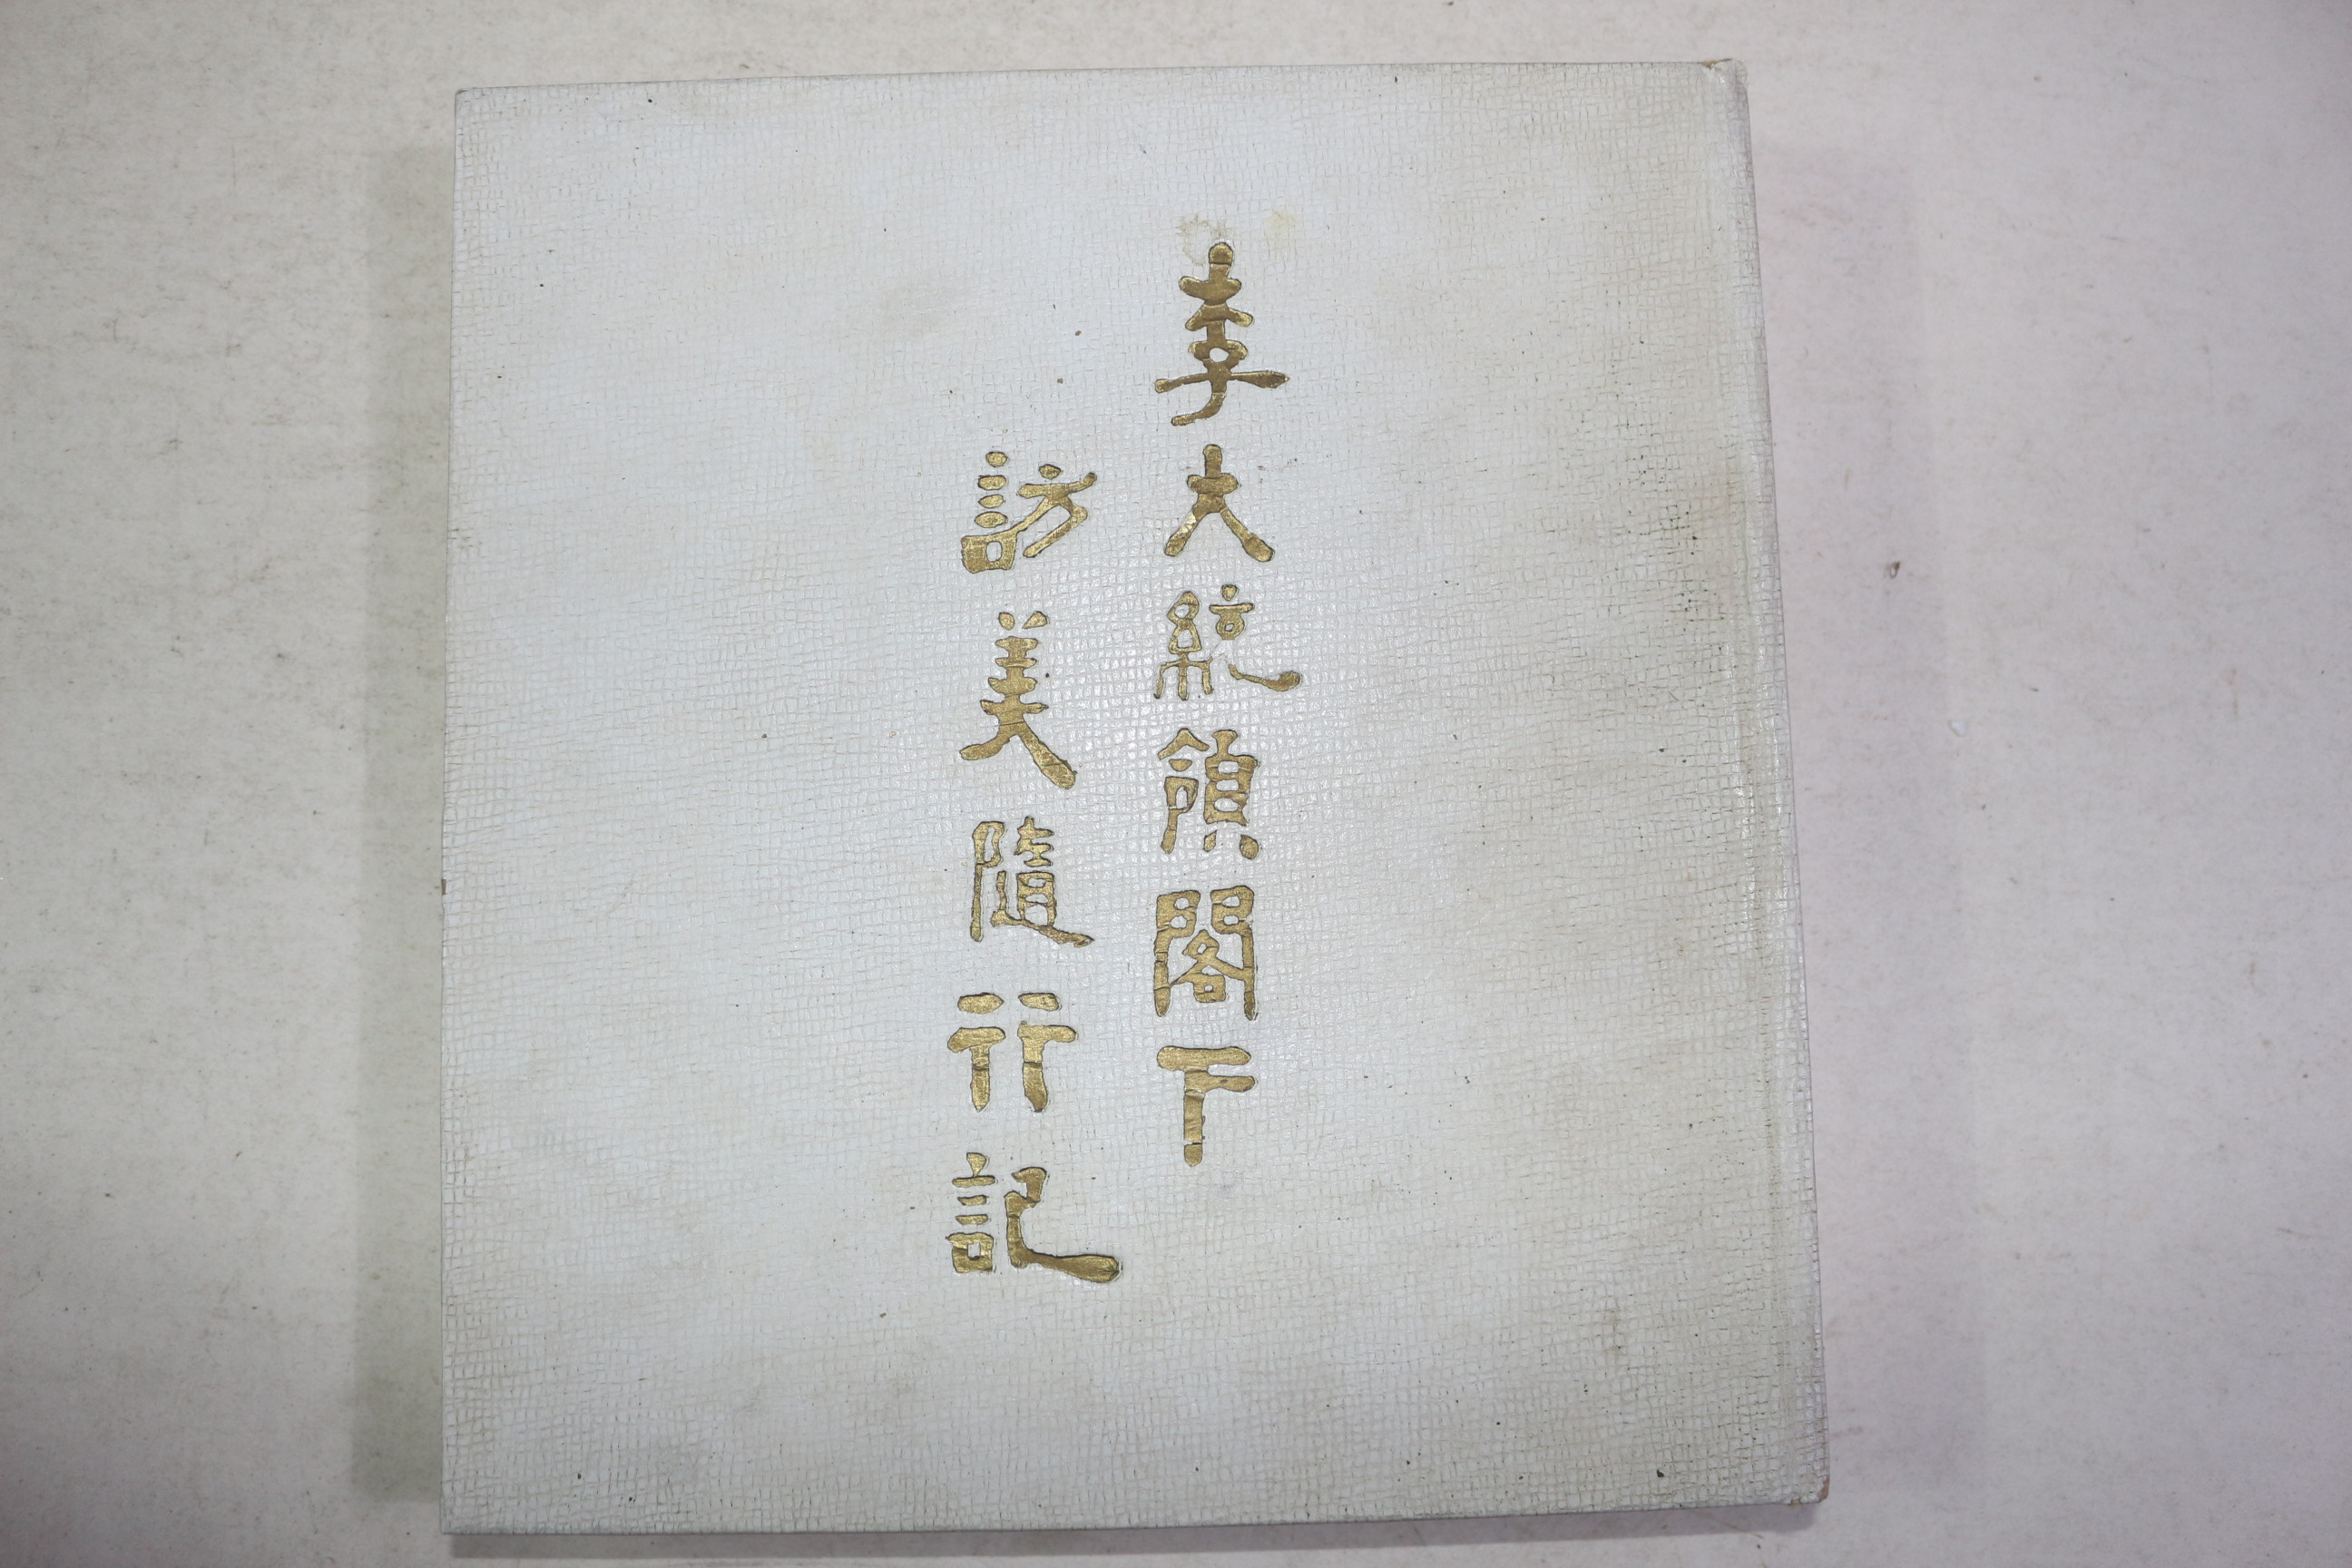 李大統領閣下
訪美隨行記